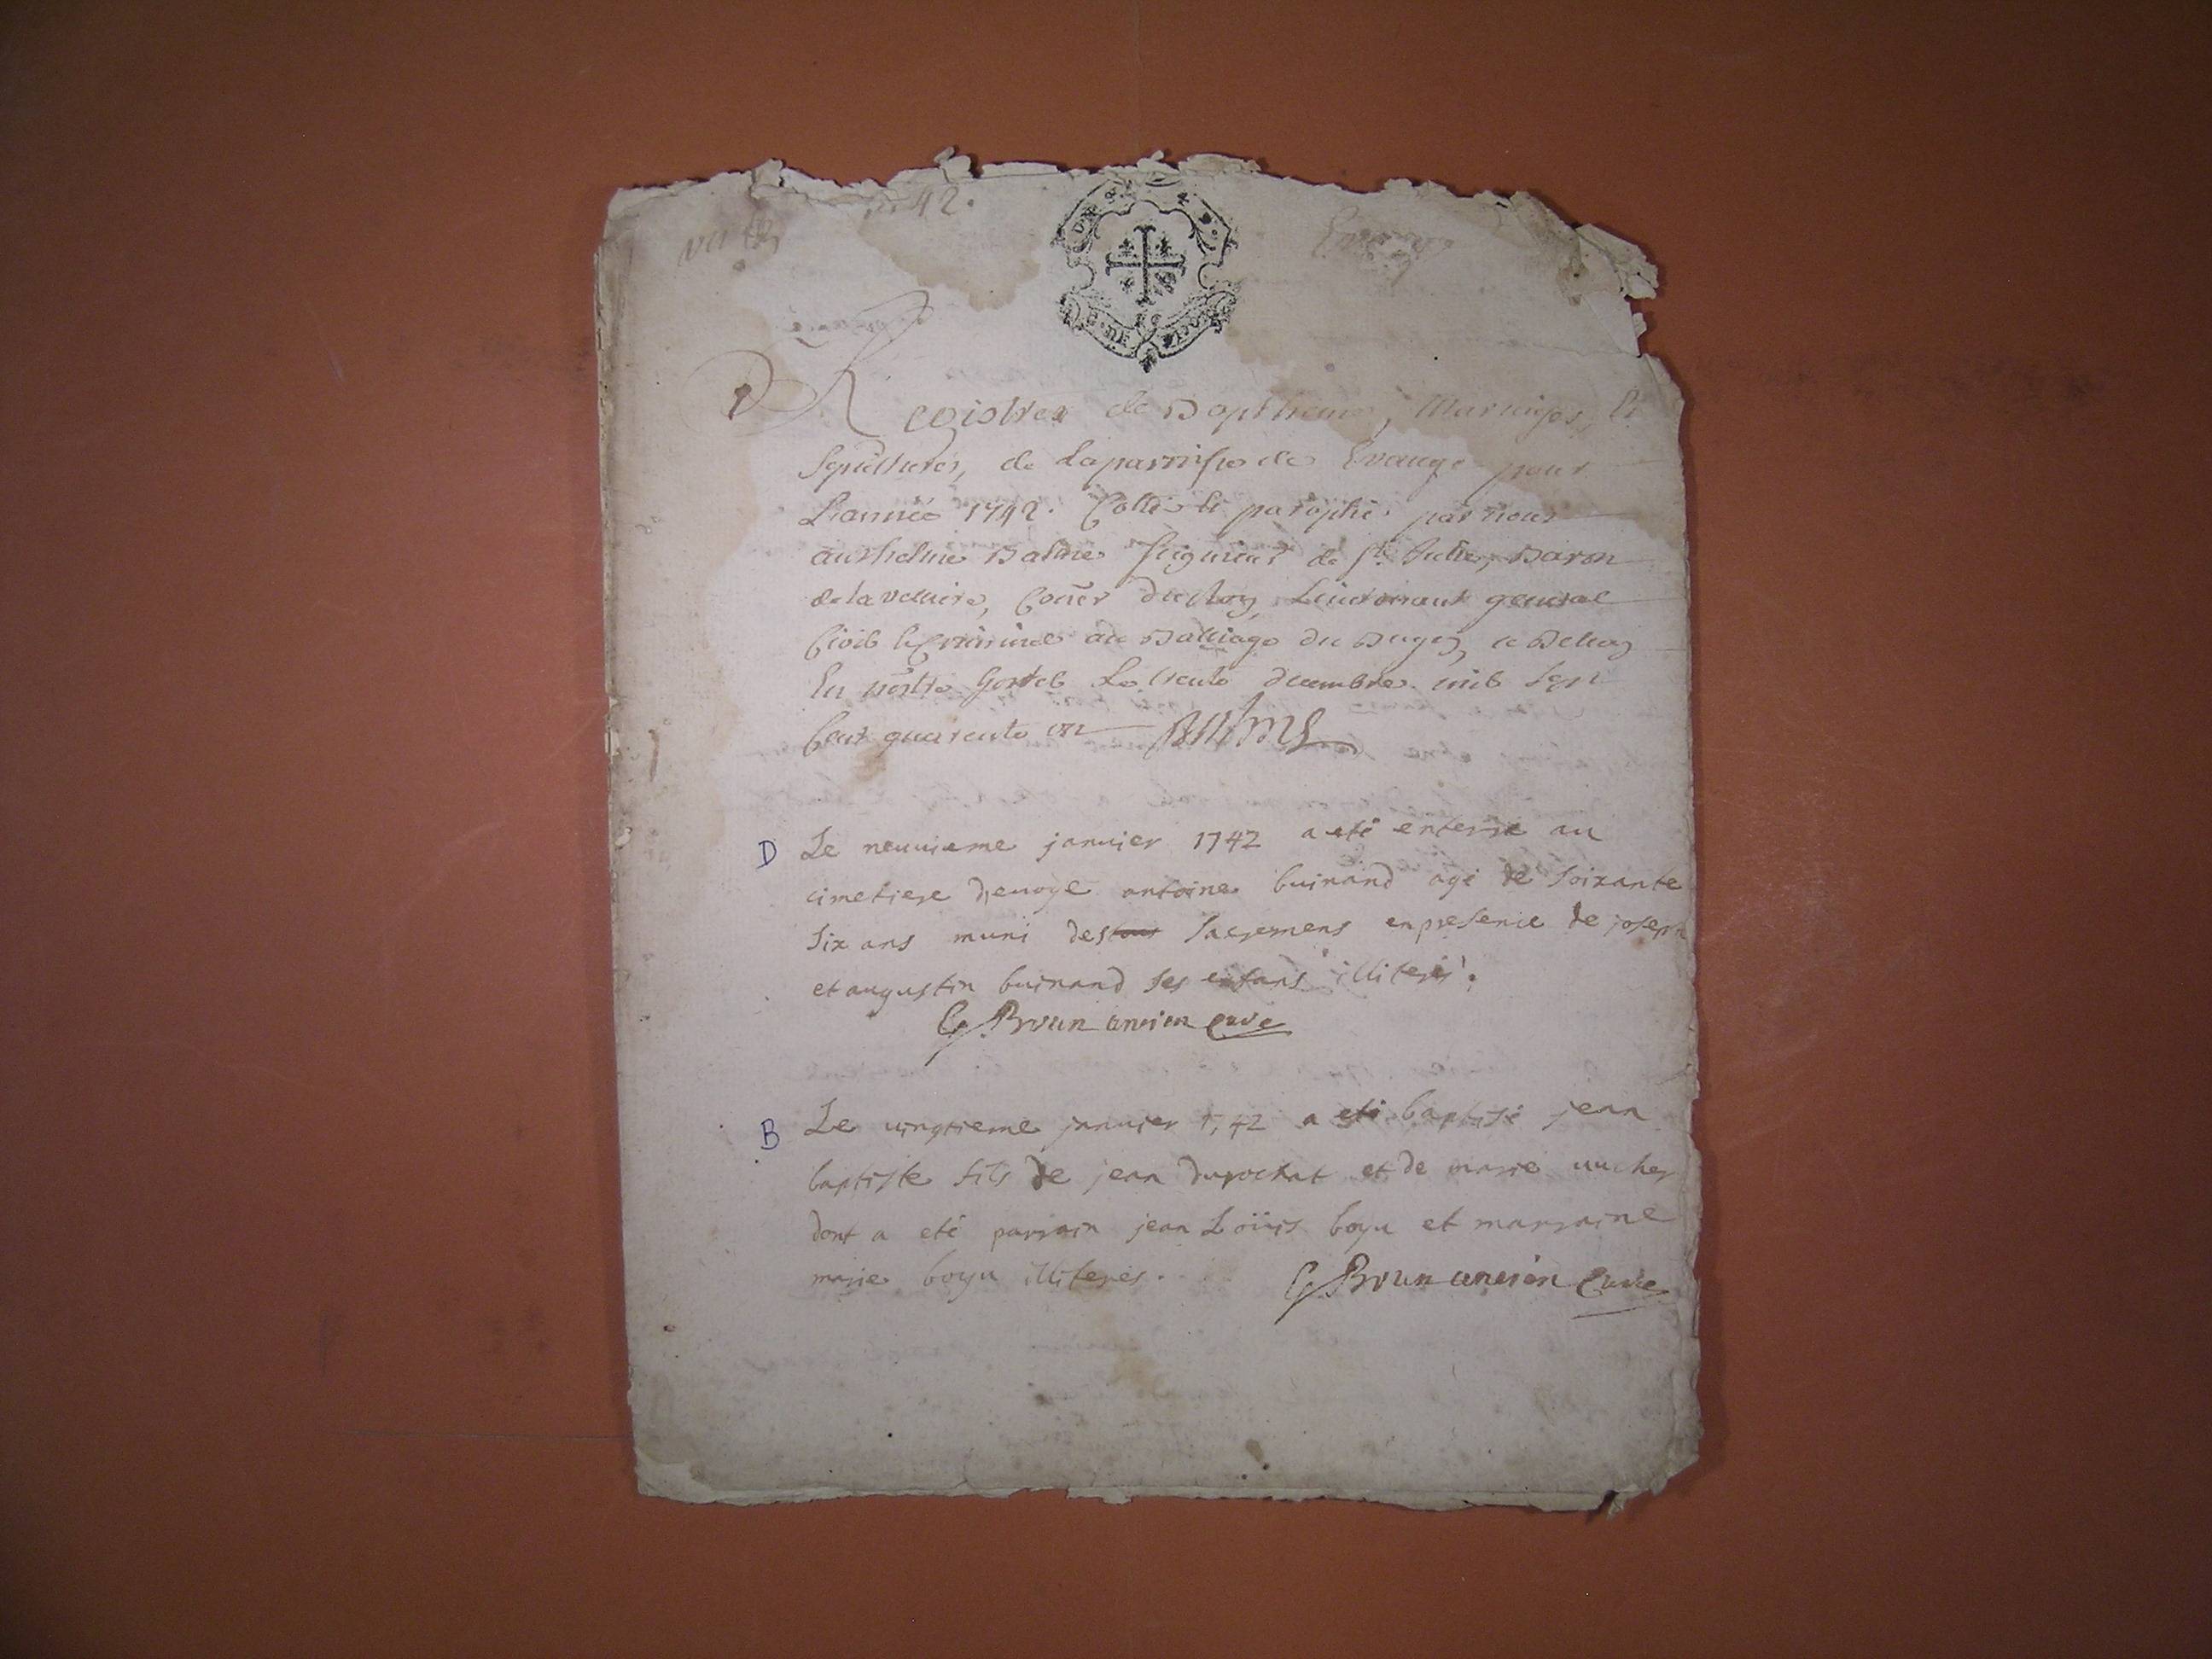 42.
Registres de Bapthemes, Mariages, Et
Sepultures, de La parroisse de Evauge pour
L'année 1742. Cotté Et paraphé par nous
anthelme Balme Seigneur de St. Julie, Baron
de la velliere, Coner du Roy, Lieutenant general
Civil Et Criminel au Balliage du Bugey, a Belley
En nostre hostel Le trente decembre mil sept
Cent quarente un Balme
D Le neuvieme janvier 1742 a eté enterré au
cimetiere d'evoge antoine buinand agé de soixante
six ans muni des tous sacremens en presence de joseph
et augustin buinand ses enfans illiterés.
Brun ancien Curé
B Le vingtieme janvier 1742 a eté baptisé jean
baptiste fils de jean durochat et de marie
dont a eté parrain jean Loüis boyu et marraine
marie boyu illiterés. Brun ancien Curé